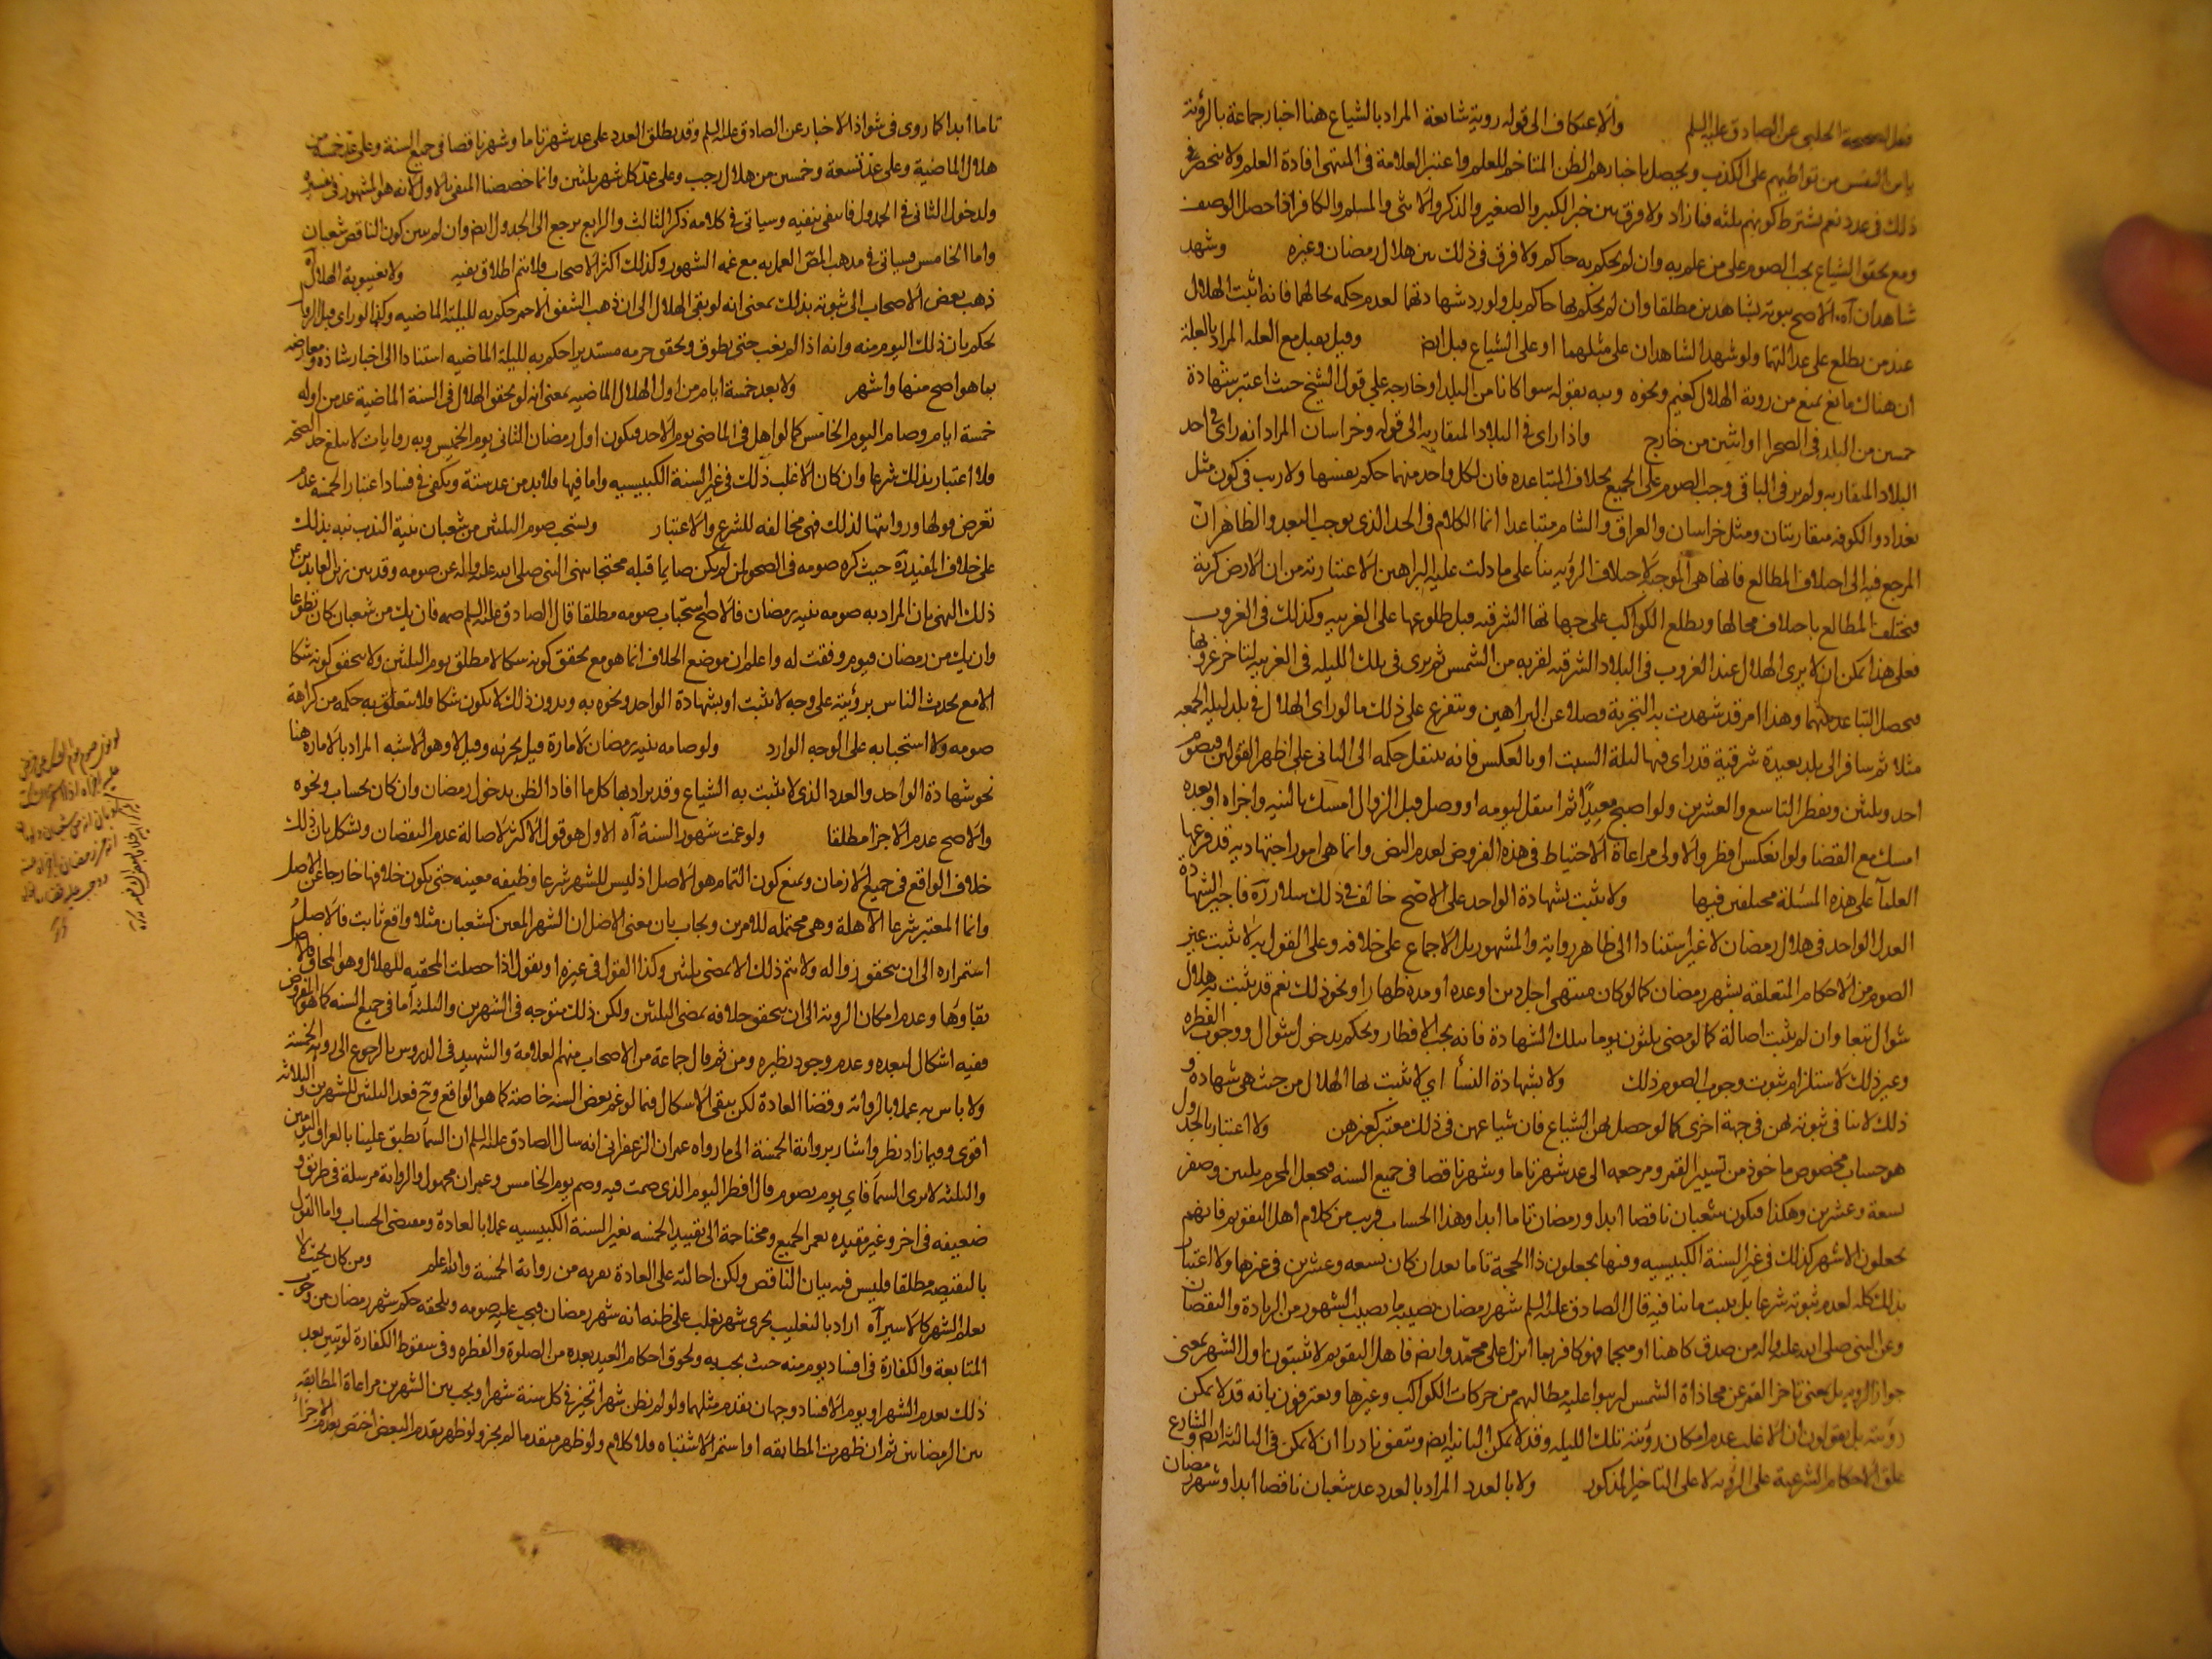 فعل الصحيحة الحلبي عن الصادق عليه السلم والاعتكاف الى قوله روية شائعة المراد بالشياع هنا اخبار جماعة بالرؤية
يامن النفس من تواطيهم على الكذب ويحصل باخبارهم الظن المتاخم للعلم واعتبر العلامة في المنتهى افادة العلم ولا ينحصر
ذلك في عدد نعم يشترط كونهم ثلثه فما زاد ولا فرق بين خبر الكبير والصغير والذكر والانثى والمسلم والكافر اذا حصل الوصف
ومع تحقق الشياع يجب الصوم على من علم به وان لم يحكم به حاكم ولا فرق في ذلك بين هلال رمضان وغيره وشهد
شاهدان آه الاصح ثبوته بشاهدين مطلقا وان لم يحكم بها حاكم بل ولو رد شهادتهما لعدم حكمه بحالهما فانه اثبت الهلال
عند من يطلع على عدالتهما ولو شهد الشاهدان على مثلهما او على الشياع قبل ايض وقيل يقبل مع العله المراد بالعلة
ان هناك مانع يمنع من روية الهلال كغيم ونحوه ونبه بقوله سوا كانا من البلد او خارجه على قول الشيخ حيث اعتبر شهادة
خمسين من البلد في الصحو او اثنين من خارج واذا راى في البلاد المتقاربه الى قوله وخراسان المراد انه راى في احد
البلاد المتقاربه ولم ير في الباقي وجب الصوم على الجميع بخلاف المتباعده فان لكل واحد منهما حكم نفسها ولا ريب في كون مثل
بغداد والكوفه متقاربتان ومثل خراسان والعراق والشام متباعدا انما الكلام في الحد الذي يوجب البعد والظاهر ان
المرجع فيه الى اختلاف المطالع فانها هي الموجبه لاختلاف الرؤيه بنا على ما دلت عليه البراهين الاعتبارية من ان الارض كرية
فتختلف المطالع باختلاف محالها وتطلع الكواكب على جهاتها الشرقيه قبل طلوعها على الغربيه وكذلك في الغروب
فعلى هذا يمكن ان لا يرى الهلال عند الغروب في البلاد الشرقيه لقربه من الشمس ثم يرى في تلك الليله في الغربيه لتاخر غروبها
فيحصل التباعد بينهما وهذا امر قد شهدت به التجربة فضلا عن البراهين ويتفرع على ذلك ما لو راى الهلال في بلد ليله الجمعه
مثلا ثم سافر الى بلد بعيدة شرقية قد راى فيها ليلة السبت او بالعكس فانه ينتقل حكمه الى الثاني على اظهر القولين فيصوم
احد وثلثين ويفطر التاسع والعشرين ولو اصبح معيدا ثم انتقل ليومه ووصل قبل الزوال امسك بالنيه واجزاه او بعده
امسك مع القضا ولو انعكس افطر والاولى مراعاة الاحتياط في هذه الفروض لعدم النص وانما هي امور اجتهاديه قد فرعها
العلمآ على هذه المسئلة مختلفين فيها ولا يثبت بشهادة الواحد على الاصح خالف في ذلك سلار ره فاجتزا بشهادة
العدل الواحد في هلال رمضان لا غير استنادا الى ظاهر رواية والمشهور بل الاجماع على خلافه وعلى القول به لا يثبت غير
الصوم من الاحكام المتعلقه بشهر رمضان كما لو كان منتهى اجل دين او عده او مده ظهار او نحو ذلك نعم قد يثبت هلال
شوال تبعا وان لم يثبت اصالة كما لو مضى ثلثون يوما بتلك الشهادة فانه يجب الافطار ويحكم بدخول شوال ووجوب الفطره
وغير ذلك لاستلزام ثبوت وجوب الصوم ذلك ولا بشهادة النسآ اي لا يثبت بها الهلال من حيث هي شهادة و
ذلك لا ينافي ثبوته لهن في جهة اخرى كما لو حصل لهن الشياع فان شياعهن في ذلك معتبر كغيرهن ولا اعتبار بالجدول
هو حساب مخصوص ماخوذ من تسيير القمر ومرجعه الى عد شهر تاما وشهر ناقصا في جميع السنه فيجعل المحرم ثلثين وصفر
تسعة وعشرين وهكذا فيكون شعبان ناقصا ابدا ورمضان تاما ابدا وهذا الحساب قريب من كلام اهل التقويم فانهم
يجعلون الاشهر كذلك في غير السنة الكبيسيه وفيها يجعلون ذا الحجة تاما بعد ان كان تسعه وعشرين في غيرها ولا اعتبار
بذلك كله لعدم ثبوته شرعا بل ثبت ما ينافيه قال الصادق عليه السلم شهر رمضان يصيبه ما يصيب الشهور من الزيادة والنقصان
وعن النبي صلى الله عليه واله من صدق كاهنا او منجما فهو كافر بما انزل على محمد وايض فاهل التقويم لا يثبتون اول الشهر بمعنى
جواز الرويه بل بمعنى تاخر القمر عن محاذاة الشمس ليرتبوا عليه مطالبهم من حركات الكواكب وغيرها ويعترفون بانه قد لا يمكن
رؤيته بل يقولون ان الاغلب عدم امكان رؤيته تلك الليله وقد لا يمكن الثانيه ايض ويتفق نادرا ان لا يمكن في الثالثه ايض والشارع
علق الاحكام الشرعية على الرؤيه لا على التاخير المذكور ولا بالعدد المراد بالعدد عد شعبان ناقصا ابدا وشهر رمضان
تاما ابدا كما روى في شواذ الاخبار عن الصادق عليه السلم وقد يطلق العدد على عد شهر تاما وشهر ناقصا في جميع السنة وعلى عد خمسة من
هلال الماضية وعلى عد تسعة وخمسين من هلال رجب وعلى عد كل شهر ثلثين وانما خصصنا المنفى بالاول لانه هو المشهور في تفسيره
ولدخول الثاني في الجدول فانتفى بنفيه وسياتي في كلامه ذكر الثالث والرابع يرجع الى الجدول ايض وان لم يبين كون الناقص شعبان
واما الخامس فسياتي في مذهب المص العمل به مع غمه الشهور وكذلك اكثر الاصحاب فلا يتم اطلاق نفيه ولا بغيبوبة الهلال آه
ذهب بعض الاصحاب الى ثبوته بذلك بمعنى انه لو بقى الهلال الى ان ذهب الشفق الاحمر حكم به لليلة الماضيه وكذا لو راى قبل الزوال
يحكم بان ذلك اليوم منه وانه اذا لم يغب حتى يطوق وتحقق جرمه مستديرا حكم به لليلة الماضيه استنادا الى اخبار شاذه معارضه
بما هو اصح منها واشهر ولا بعد خمسة ايام من اول الهلال الماضيه بمعنى انه لو تحقق الهلال في السنة الماضية عد من اوله
خمسة ايام وصام اليوم الخامس كما لو اهل في الماضي يوم الاحد فيكون اول رمضان الثاني يوم الخميس وبه روايات لا تبلغ حد الصحه
ولا اعتبار بذلك شرعا وان كان الاغلب ذلك في غير السنة الكبيسيه واما فيها فلا بد من عد ستة ويكفي في فساد اعتبار الخمسة عدم
تعرض قولها ورواتها لذلك فهي مخالفه للشرع والاعتبار ويستحب صوم الثلثين من شعبان بنية الندب نبه بذلك
على خلاف المفيد ره حيث كره صومه في الصحو لمن لم يكن صايما قبله محتجا بنهي النبي صلى الله عليه واله عن صومه وقد بين زين العابدين ع
ذلك النهي بان المراد به صومه بنيه رمضان فالاصح استحباب صومه مطلقا قال الصادق عليه السلم صمه فان يك من شعبان كان تطوعا
وان يك من رمضان فيوم وفقت له واعلم ان موضع الخلاف انما هو مع تحقق كونه شكا لا مطلق يوم الثلثين ولا يتحقق كونه شكا
الا مع تحدث الناس برؤيته على وجه لا يثبت او بشهادة الواحد ونحوه به وبدون ذلك لا يكون شكا فلا يتعلق به حكمه من كراهة
صومه ولا استحبابه على الوجه الوارد ولو صامه بنيه رمضان لامارة قيل يجزئه وقيل لا وهو الاشبه المراد بالاماره هنا
نحو شهادة الواحد والعدد الذي لا يثبت به الشياع وقد يراد بها كل ما افاد الظن بدخول رمضان وان كان بحساب ونحوه
والاصح عدم الاجزا مطلقا ولو غمت شهور السنة آه الاول هو قول الاكثر لاصالة عدم النقصان ويشكل بان ذلك
خلاف الواقع في جميع الازمان ويمنع كون التمام هو الاصل اذ ليس للشهر شرعا وظيفه معينه حتى يكون خلافها خارجا عن الاصل
وانما المعتبر شرعا الاهلة وهي محتمله للامرين ويجاب بان معنى الاصل ان الشهر المعين كشعبان مثلا واقع ثابت فالاصل
استمراره الى ان يتحقق زواله ولا يتم ذلك الا بمضى ثلثين وكذا القول في غيره او نقول اذا حصلت المحقيه للهلال وهو المحاق فالاصل
بقاؤها وعدم امكان الروية الى ان يتحقق خلافه بمضى الثلثين ولكن ذلك متوجه في الشهرين والثلثه اما في جميع السنه كما هو المفروض
ففيه اشكال لبعده وعدم وجود نظيره ومن ثم قال جماعة من الاصحاب منهم العلامة والشهيد في الدروس بالرجوع الى رواية الخمسة
ولا باس به عملا بالرواية وقضا العادة لكن يبقى الاشكال فيما لو غم بعض السنه خاصة كما هو الواقع وح فعد الثلثين للشهرين والثلاثه
اقوى وفيما زاد نظر واشار برواية الخمسة الى ما رواه عمران الزعفراني انه سال الصادق عليه السلم ان السمآ تطبق علينا بالعراق اليومين
والثلثه لا نرى السمآ فاي يوم نصوم قال افطر اليوم الذي صمت فيه وصم يوم الخامس وعمران مجهول والرواية مرسلة في طريق و
ضعيفه في اخر وغير مقيده تعم الجميع ومحتاجة الى تقييد الخمسه بغير السنة الكبيسيه عملا بالعادة ومقتضى الحساب واما القول
بالنقيصه مطلقا فليس فيه بيان الناقص ولكن احالته على العادة تقربه من رواية الخمسة والله اعلم ومن كان بحيث لا
يعلم الشهر كالاسير آه اراد بالتغليب تحرى شهر يغلب على ظنه انه شهر رمضان فيجب عليه صومه ويلحقه حكم شهر رمضان من وجوب
المتابعة والكفارة في افساد يوم منه حيث تجب به ولحوق احكام العيد بعده من الصلوة والفطره وفي سقوط الكفارة لو تبين بعد
ذلك تقدم الشهر او يوم الافساد وجهان تقدم مثلهما ولو لم يظن شهرا تخير في كل سنة شهرا ويجب بين الشهرين مراعاة المطابقه
بين الرمضانين ثم ان ظهرت المطابقه او استمر الاشتباه فلا كلام ولو ظهر متقدما لم يجز ولو ظهر تقدم البعض اختص بعدم الاجزاء